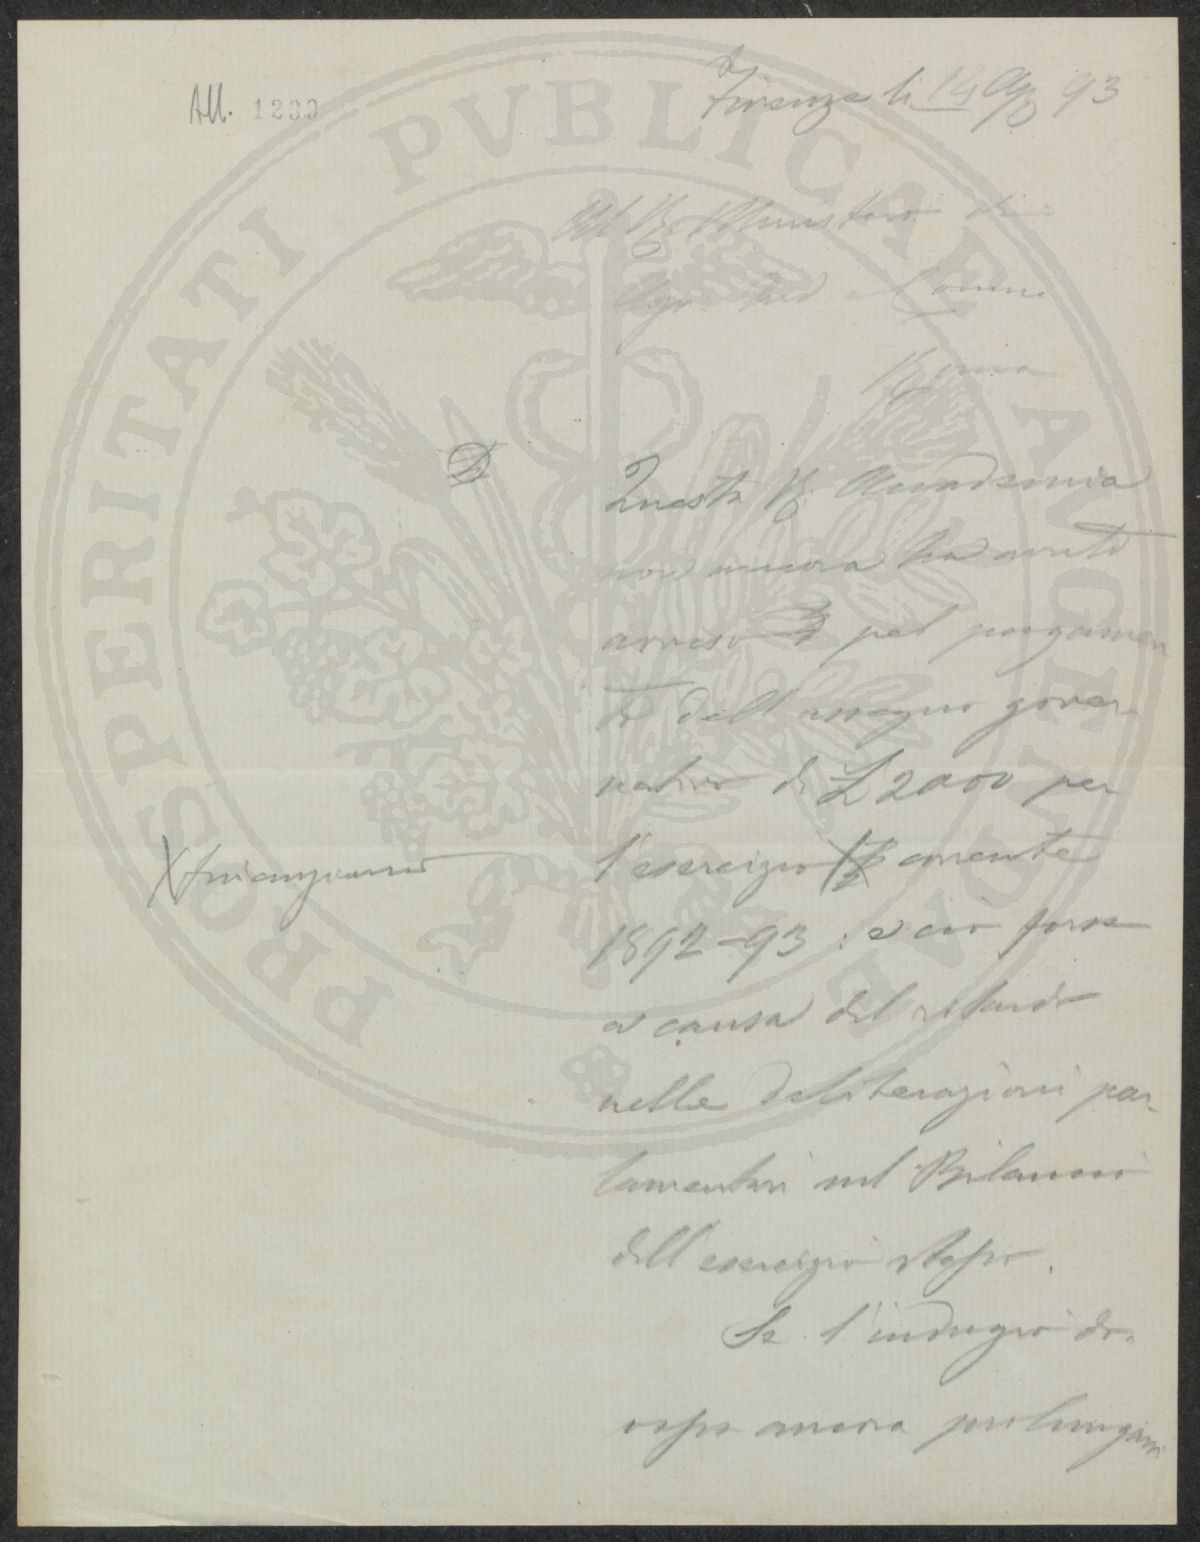 All. 1233
Firenze li 14 Ag 93
Al R. Ministero di
Agr. Ind e Comm.
Roma
Questa R. Accademia
non ancora ha avuto
avviso pel pagamen
to dell'assegno gover
nativo di £ 2000 per
l'esercizio corrente
X finanziario
1892-93: e ciò forse
a causa del ritardo
nelle deliberazioni par-
lamentari sul Bilancio
dell'esercizio stesso.
Se l'indugio do-
vesse ancora prolungarsi
PROSPERITATI PVBLICAE AVGENDAE